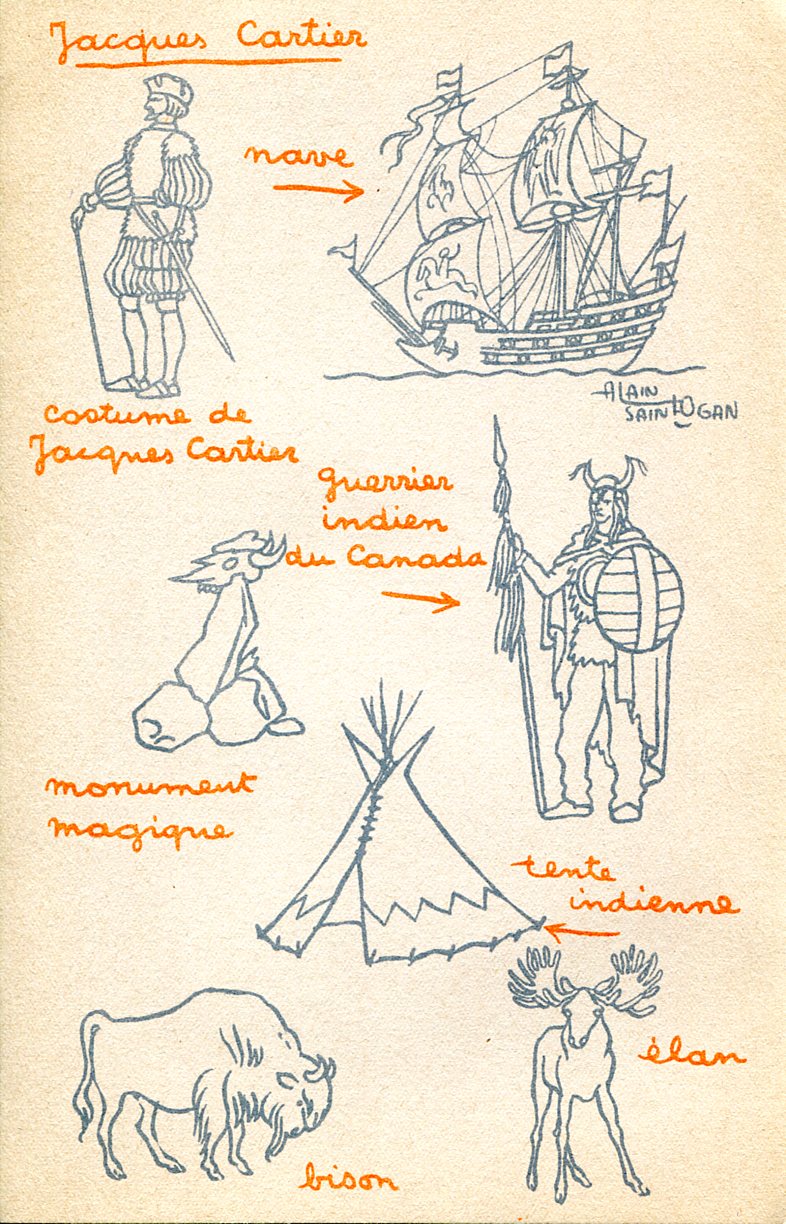 Jacques Cartier
nave
costume de
Jacques Cartier
ALAIN
SAINT-OGAN
guerrier
indien
du Canada
monument
magique
tente
indienne
élan
bison